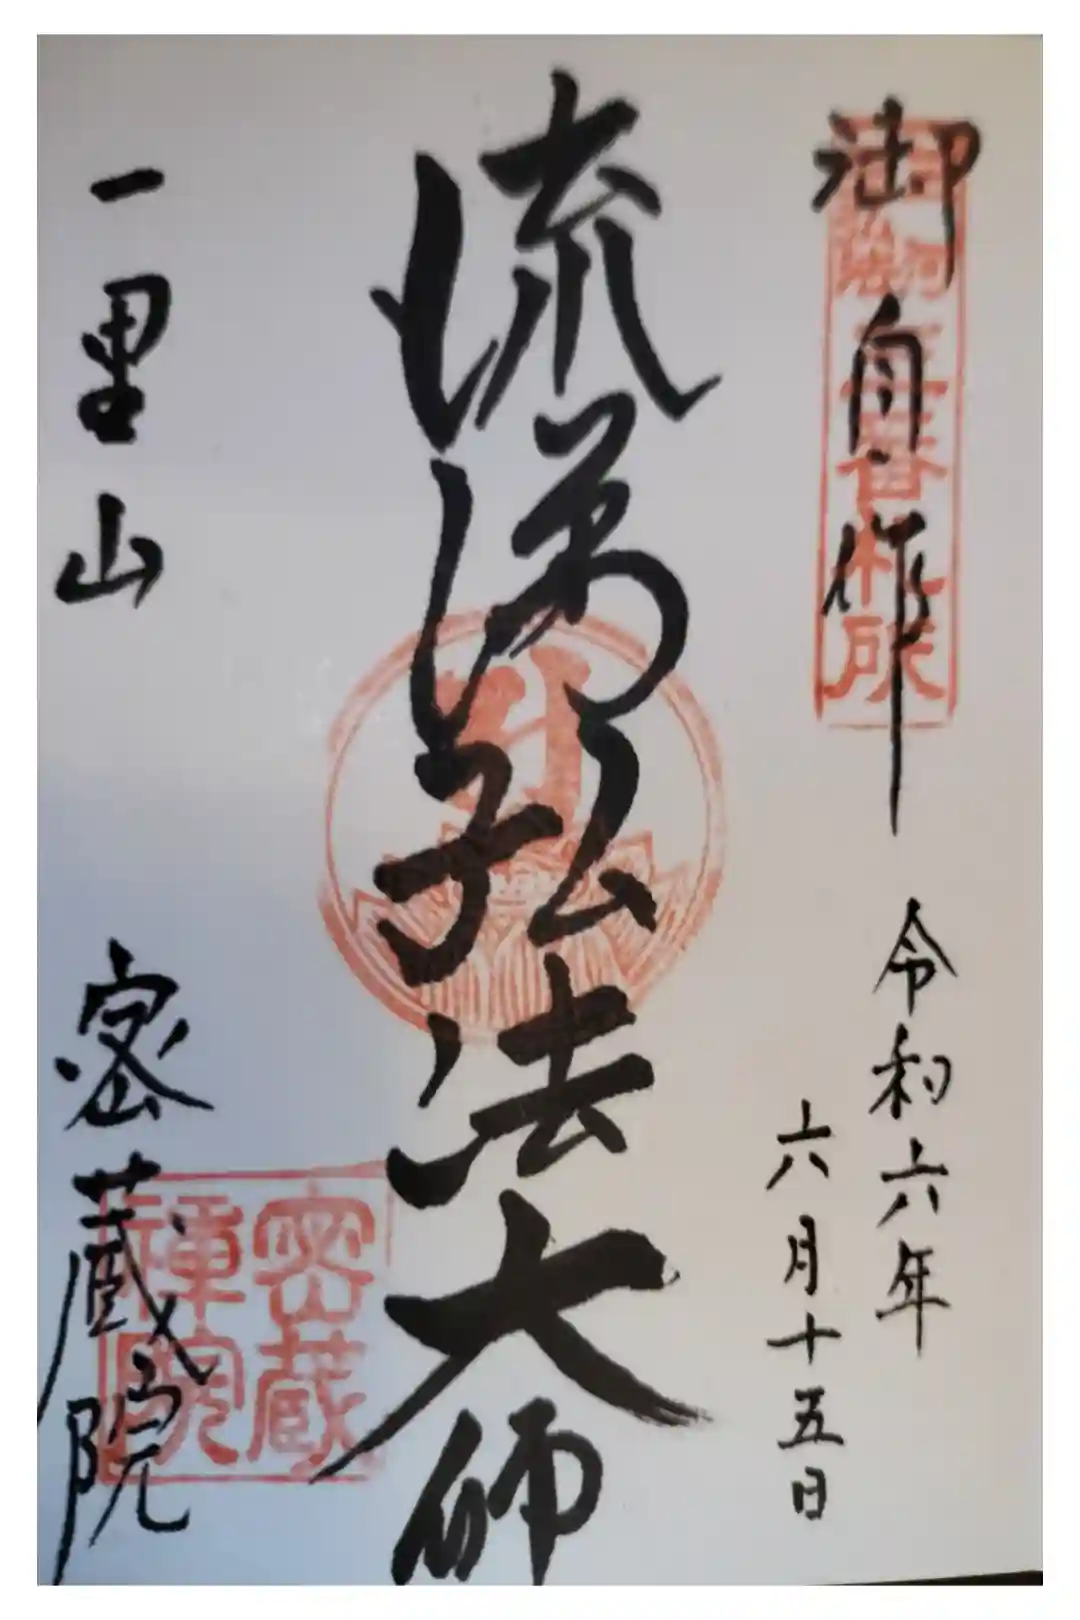 御自作
令和六年
六月十五日
流涕弘法大師
一里山
密蔵院
密蔵
禅院